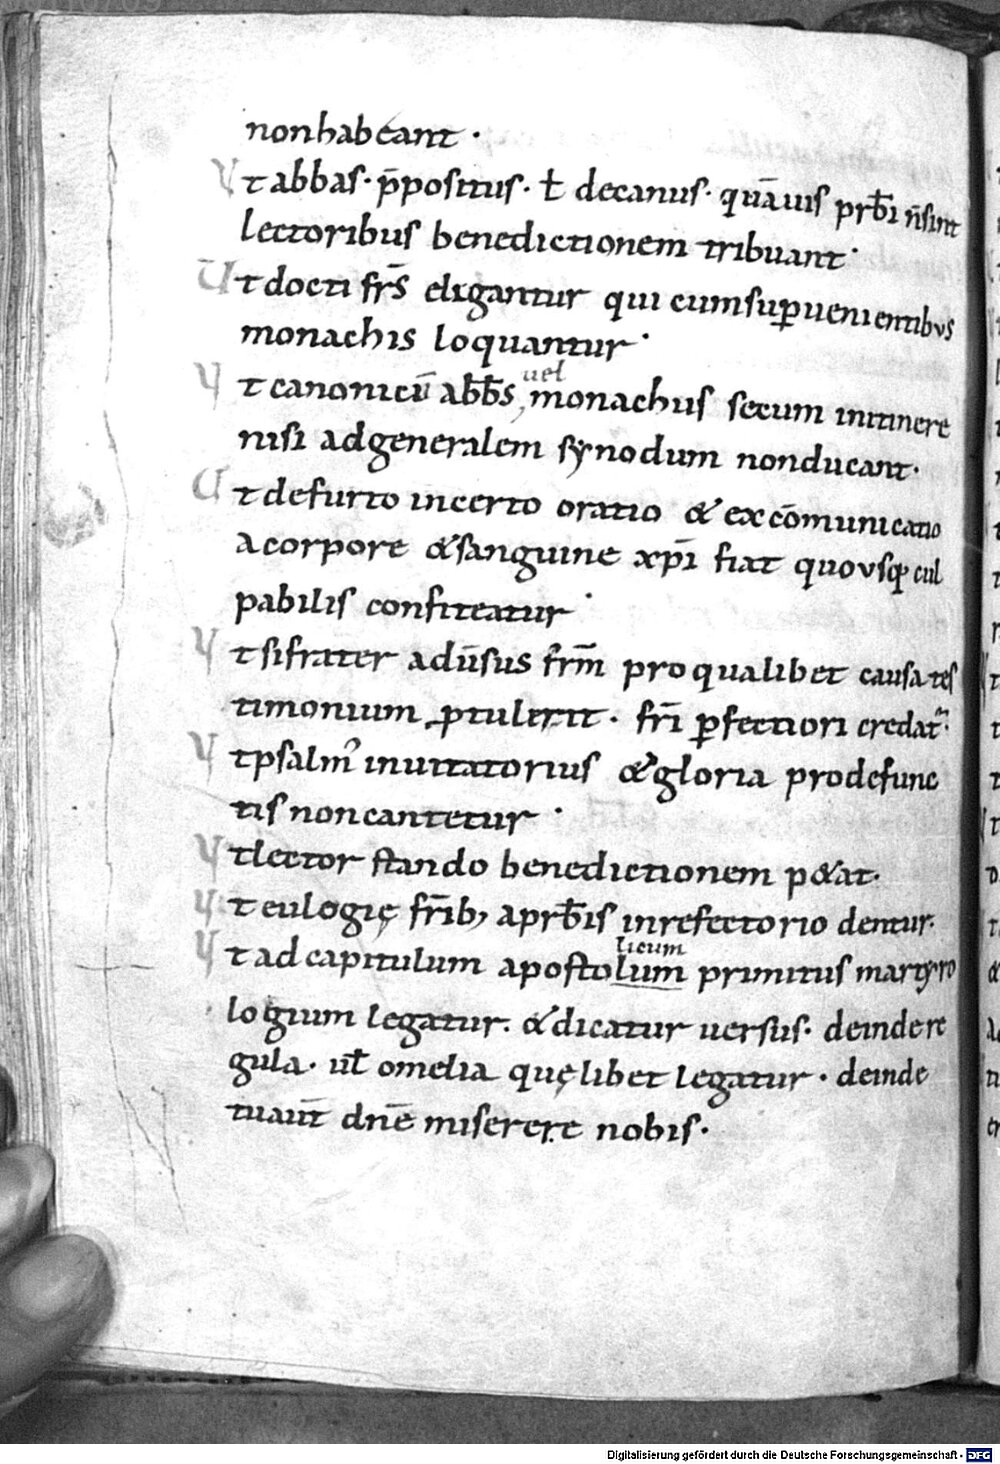 non habeant ·
Ut abbas · p̄positus · ł decanus · quāuis prb̄i n̄ sint
lectoribus benedictionem tribuant ·
Ut docti fr̄s eligantur qui cum sup̱uenientibus
monachis loquantur ·
Ut canonicū abb̄s uel monachus secum in itinere
nisi ad generalem synodum non ducant ·
Ut de furto incerto oratio & excōmunicatio
a corpore & sanguine xp̄i fiat quo usq; cul
pabilis confiteatur ·
Ut si frater aduֿsus fr̄m pro qualibet causa tes
timonium ꝓtulerit · fr̄i ꝑfectiori credat᷑ ·
Ut psalm᾽ inuitatorius & gloria pro defunc
tis non cantetur ·
Ut lector stando benedictionem p&at ·
Ut eulogię fr̄ib; a prb̄is in refectorio dentur ·
licum
Ut ad capitulum apostolum primitus martyro
logium legatur · & dicatur uersus · deinde re
gula · uł omelia quęlibet legatur · deinde
tu aūt dn̄e miserere nobis ·
Digitalisierung gefördert durch die Deutsche Forschungsgemeinschaft - DFG